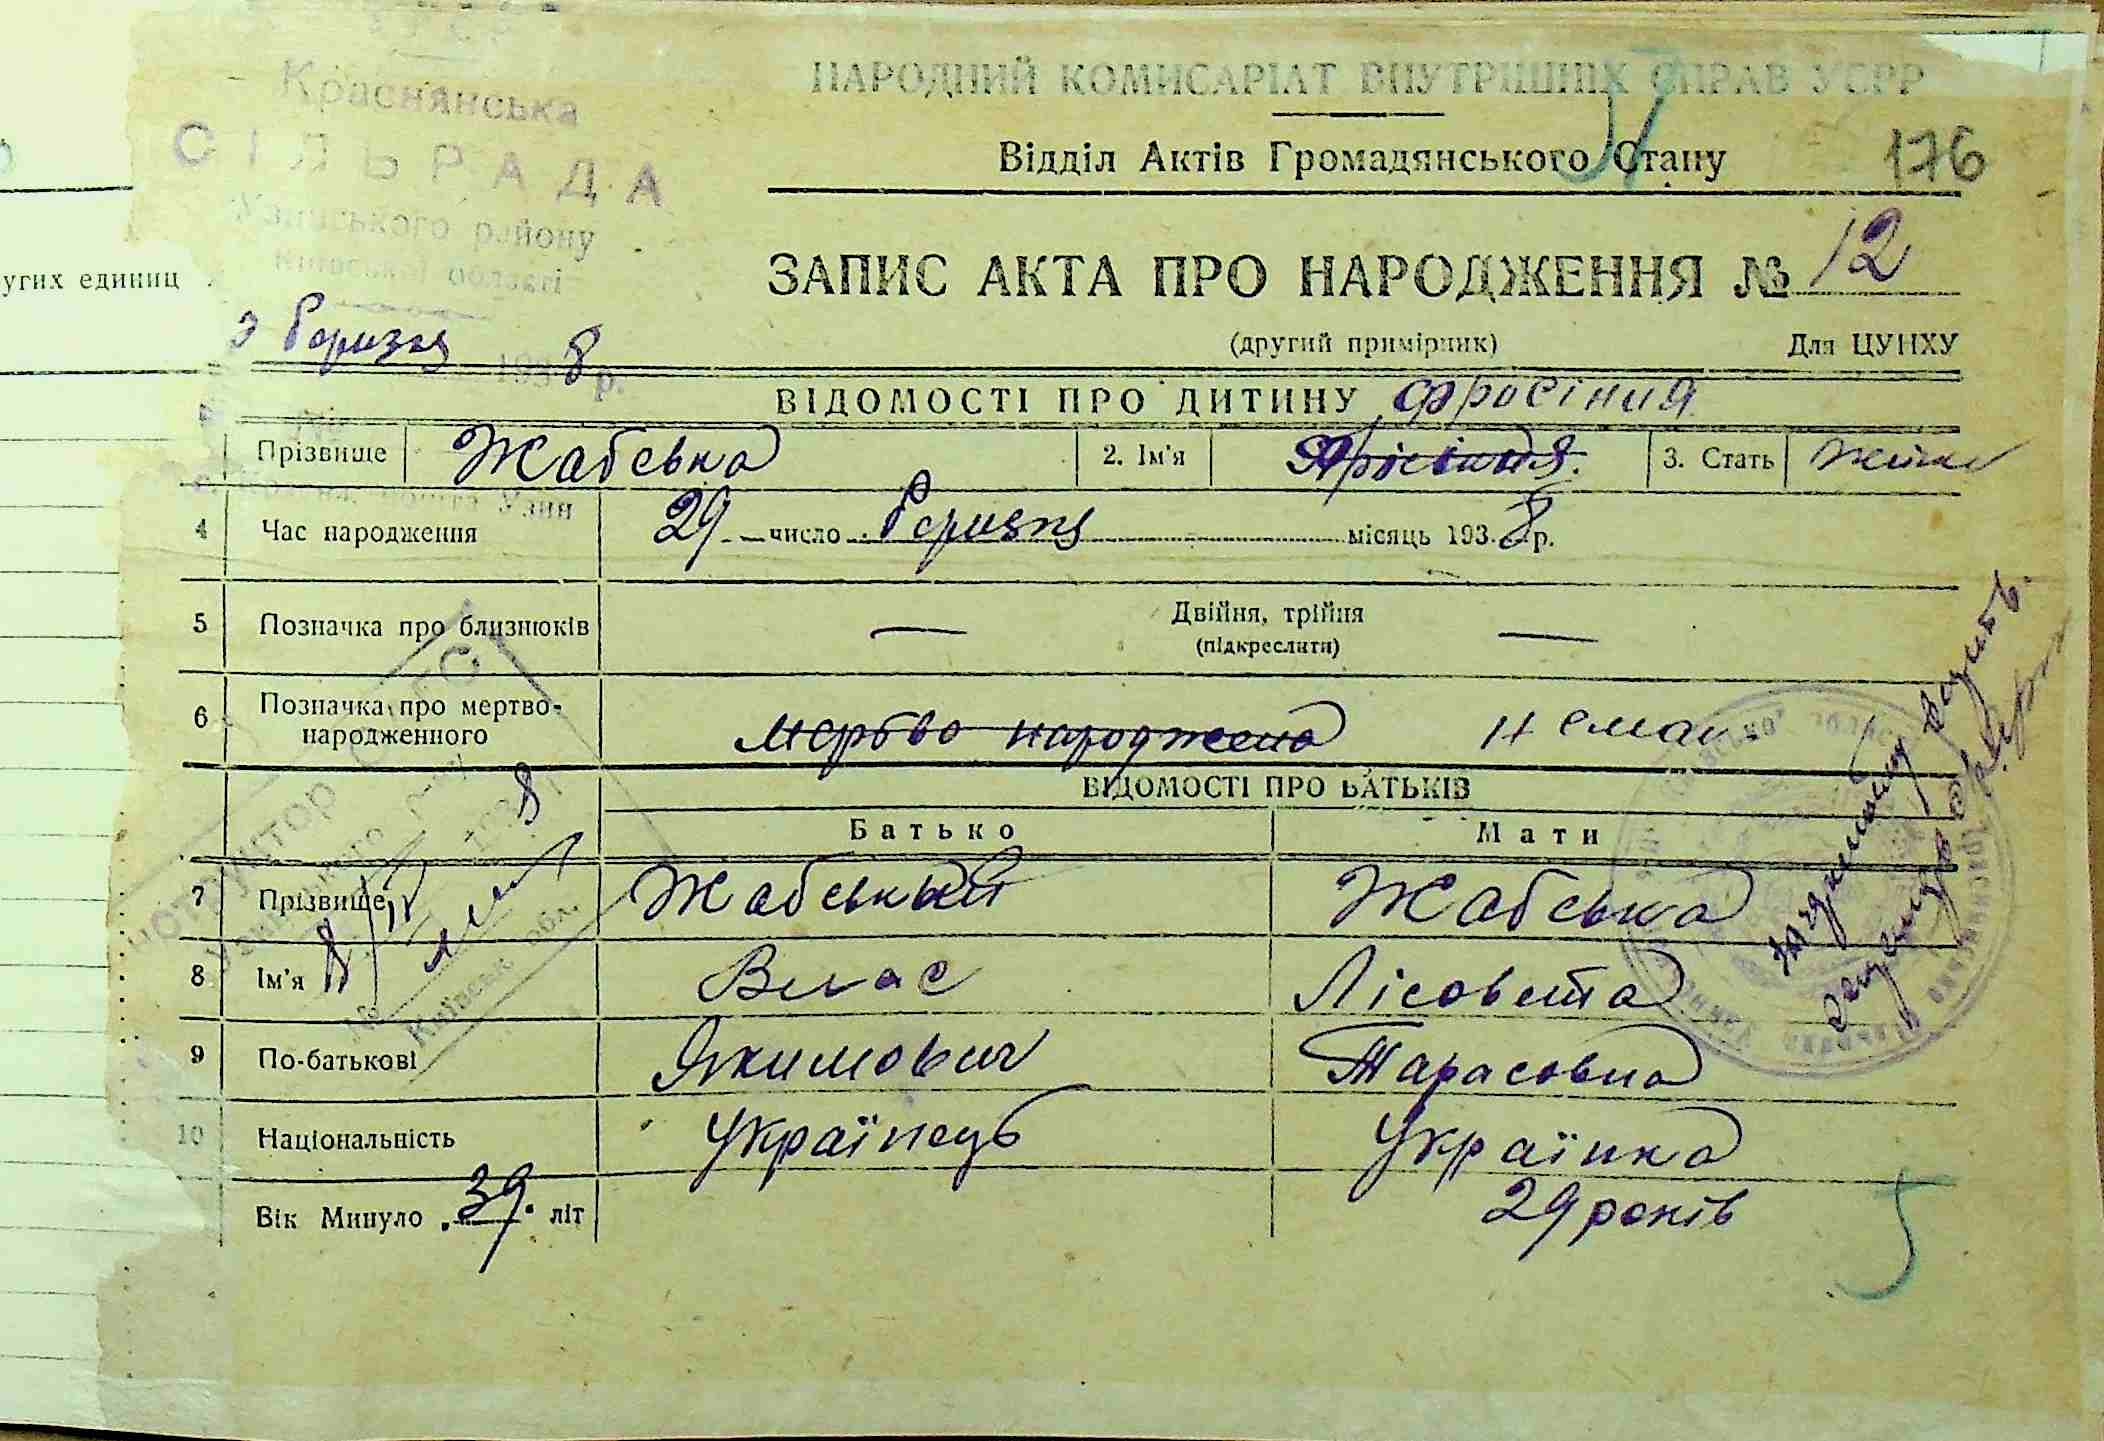 Краснянська
СІЛЬРАДА
Узинського району
Київської області
НАРОДНИЙ КОМИСАРІАТ ВНУТРІШНІХ СПРАВ УСРР
Відділ Актів Громадянського Стану
176
ЗАПИС АКТА ПРО НАРОДЖЕННЯ № 12
(другий примірник) Для ЦУНХУ
193 8 р.
угих единиц
ВІДОМОСТІ ПРО ДИТИНУ Фросіния
Прізвище Жабська 2. Ім'я 3. Стать
Узин
4 Час народження 29 число місяць 193 8 р.
5 Позначка про близнюків — Двійня, трійня —
(підкреслити)
6 Позначка про мертво-
народженного мертво народжено немає
ВІДОМОСТІ ПРО БАТЬКІВ
Батько Мати
7 Прізвище Жабський Жабська
8 Ім'я Влас Лісовета
9 По-батькові Якимович Тарасовна
10 Національність Українець Українка
Вік Минуло 39 літ 29 років
5